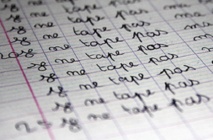 je ne tape pas
je ne tape pas
je ne tape pas
je ne tape pas
je ne tape pas
je ne tape pas
je ne tape pas